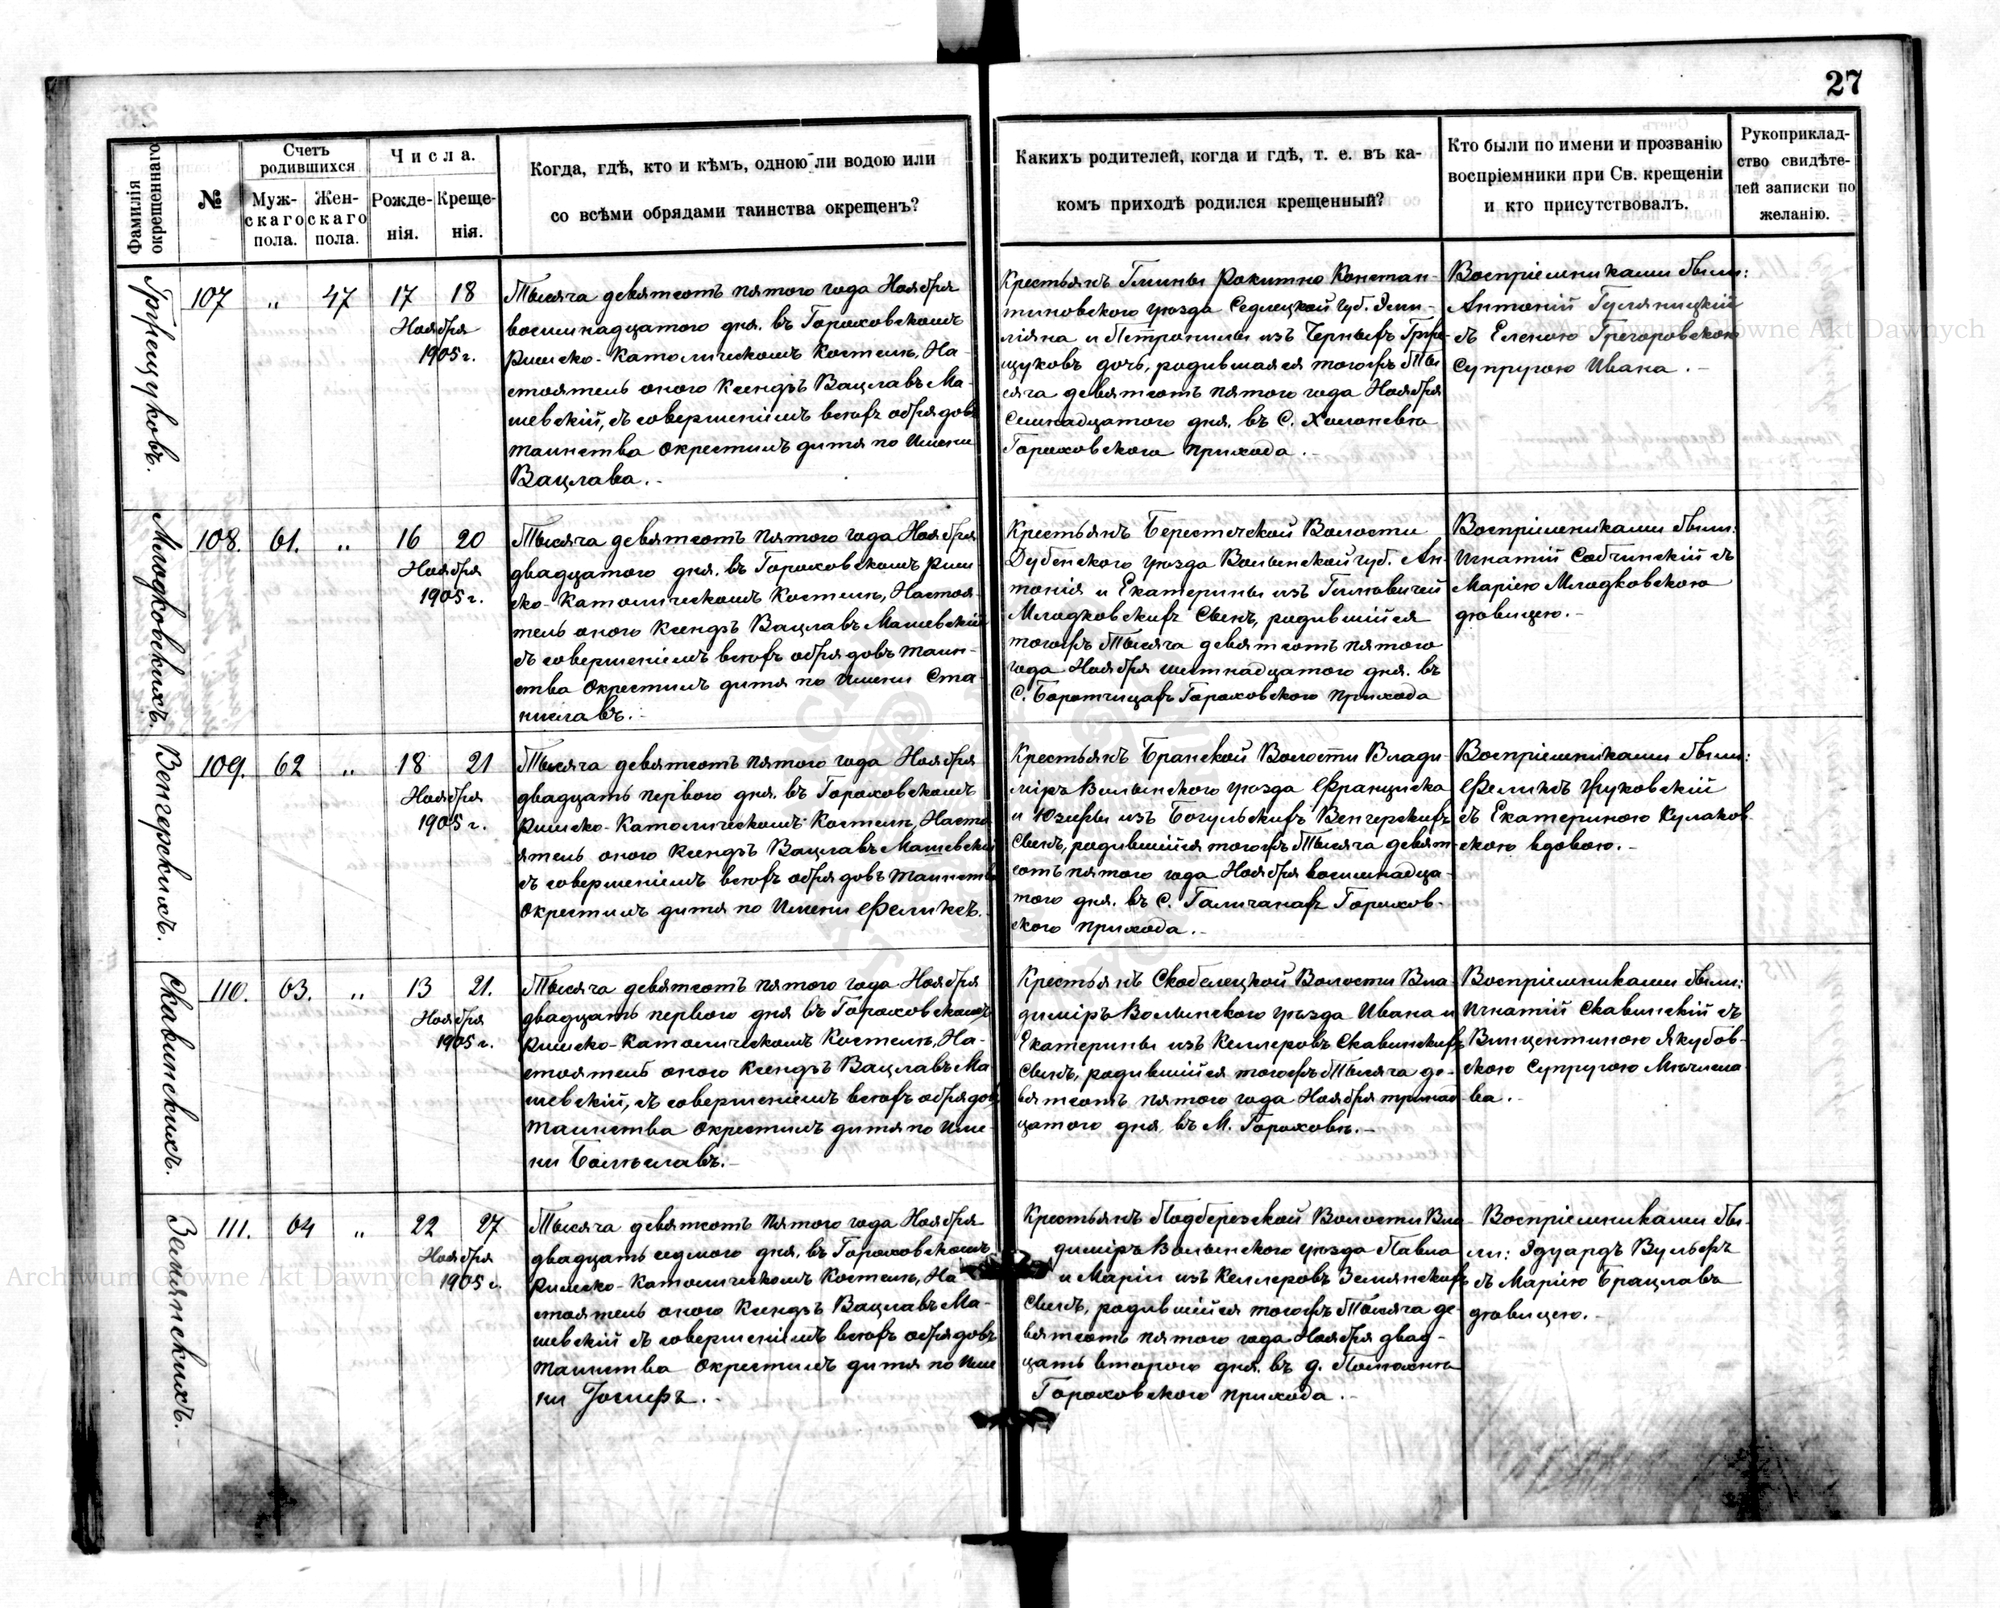 27
Фамилія окрещеннаго.
№
Счетъ родившихся
Муж-
скаго
пола.
Жен-
скаго
пола.
Числа.
Рожде-
нія.
Креще-
нія.
Когда, гдѣ, кто и кѣмъ, одною ли водою или
со всѣми обрядами таинства окрещенъ?
Какихъ родителей, когда и гдѣ, т. е. въ ка-
комъ приходѣ родился крещенный?
Кто были по имени и прозванію
воспріемники при Св. крещеніи
и кто присутствовалъ.
Рукоприклад-
ство свидѣте-
лей записки по
желанію.
107 „ 47 17 18
Ноября
1905 г.
Тысяча девятсотъ пятого года Ноября
восемнадцатого дня. въ Гороховскомъ
Римско-Католическомъ Костелѣ, На-
стоятель оного Ксендзъ Вацлавъ Ма-
шевскій, съ совершеніемъ всѣхъ обрядовъ
таинства окрестилъ дитя по Имени
Вацлава.-
Крестьянъ Гмины Рокитно Констан-
тиновского уѣзда Седлецкой губ. Эми-
ліяна и Петронели изъ
дочь, родившаяся тогожъ Ты-
сяча девятсотъ пятого года Ноября
Семнадцатого дня. въ С. Холоневѣ
Гороховского прихода.-
Воспріемниками были:
Антоній Гуляницкій
съ Еленою Грегоровскою
Супругою Ивана.-
Младковскихъ.
108. 61. „ 16 20
Ноября
1905 г.
Тысяча девятсотъ пятого года Ноября
двадцатого дня. въ Гороховскомъ Рим
ско-Католическомъ Костелѣ, Настоя-
тель оного Ксендзъ Вацлавъ Машевскій
съ совершеніемъ всѣхъ обрядовъ таин-
ства окрестилъ дитя по Имени Ста-
ниславъ.-
Крестьянъ Берестечской Волости
Дубенского уѣзда Волынской губ. Ан-
тонія и Екатерины изъ
Младковскихъ Сынъ, родившійся
тогожъ Тысяча девятсотъ пятого
года Ноября шестнадцатого дня. въ
С. Боротчицахъ Гороховского прихода
Воспріемниками были:
Игнатій Собчинскій съ
Маріею Младковскою
дѣвицею.-
Венгерскихъ.
109. 62 „ 18 21
Ноября
1905 г.
Тысяча девятсотъ пятого года Ноября
двадцать первого дня. въ Гороховскомъ
Римско-Католическомъ Костелѣ, Насто
ятель оного Ксендзъ Вацлавъ Машевскій
съ совершеніемъ всѣхъ обрядовъ таинства
окрестилъ дитя по Имени Феликсъ.
Крестьянъ Бранской Волости Влади-
міръ Волынского уѣзда Франциска
и Юзефы изъ Богульскихъ Венгерскихъ
Сынъ, родившійся тогожъ Тысяча девят-
сотъ пятого года Ноября восемнадца-
того дня. въ С. Галичанахъ Горохов-
ского прихода.-
Воспріемниками были:
Феликсъ Жуковскій
съ Екатериною Кулаков
скою вдовою.-
Скавинскихъ.
110. 63. „ 13 21.
Ноября
1905 г.
Тысяча девятсотъ пятого года Ноября
двадцать первого дня въ Гороховскомъ
Римско-Католическомъ Костелѣ, На-
стоятель оного Ксендзъ Вацлавъ Ма-
шевскій, съ совершеніемъ всѣхъ обрядовъ
таинства окрестилъ дитя по Име-
ни Болеславъ.-
Крестьянъ Скобелецкой Волости Вла-
диміръ Волынского уѣзда Ивана и
Екатерины изъ Келлеровъ Скавинскихъ
Сынъ, родившійся тогожъ Тысяча де-
вятсотъ пятого года Ноября тринад
цатого дня. въ М. Гороховѣ.-
Воспріемниками были:
Игнатій Скавинскій съ
Винцентиною Якубов-
скою Супругою Мечисла-
ва.-
Землянскихъ.-
111. 64 „ 22 27
Ноября
1905 г.
Тысяча девятсотъ пятого года Ноября
двадцать седмого дня. въ Гороховскомъ
Римско-Католическомъ Костелѣ, На-
стоятель оного Ксендзъ Вацлавъ Ма-
шевскій съ совершеніемъ всѣхъ обрядовъ
таинства окрестилъ дитя по Име
ни Іосифъ.-
Крестьянъ Подберезской Волости Вла-
диміръ Волынского уѣзда Павла
и Маріи изъ Келлеровъ Землянскихъ
Сынъ, родившійся тогожъ Тысяча де-
вятсотъ пятого года Ноября двад-
цать второго дня. въ д.
Гороховского прихода.-
Воспріемниками бы-
ли: Эдуардъ Вульфъ
съ Маріею Брацлавъ
дѣвицею.-
Archiwum Głowne Akt Dawnych
Archiwum Głowne Akt Dawnych